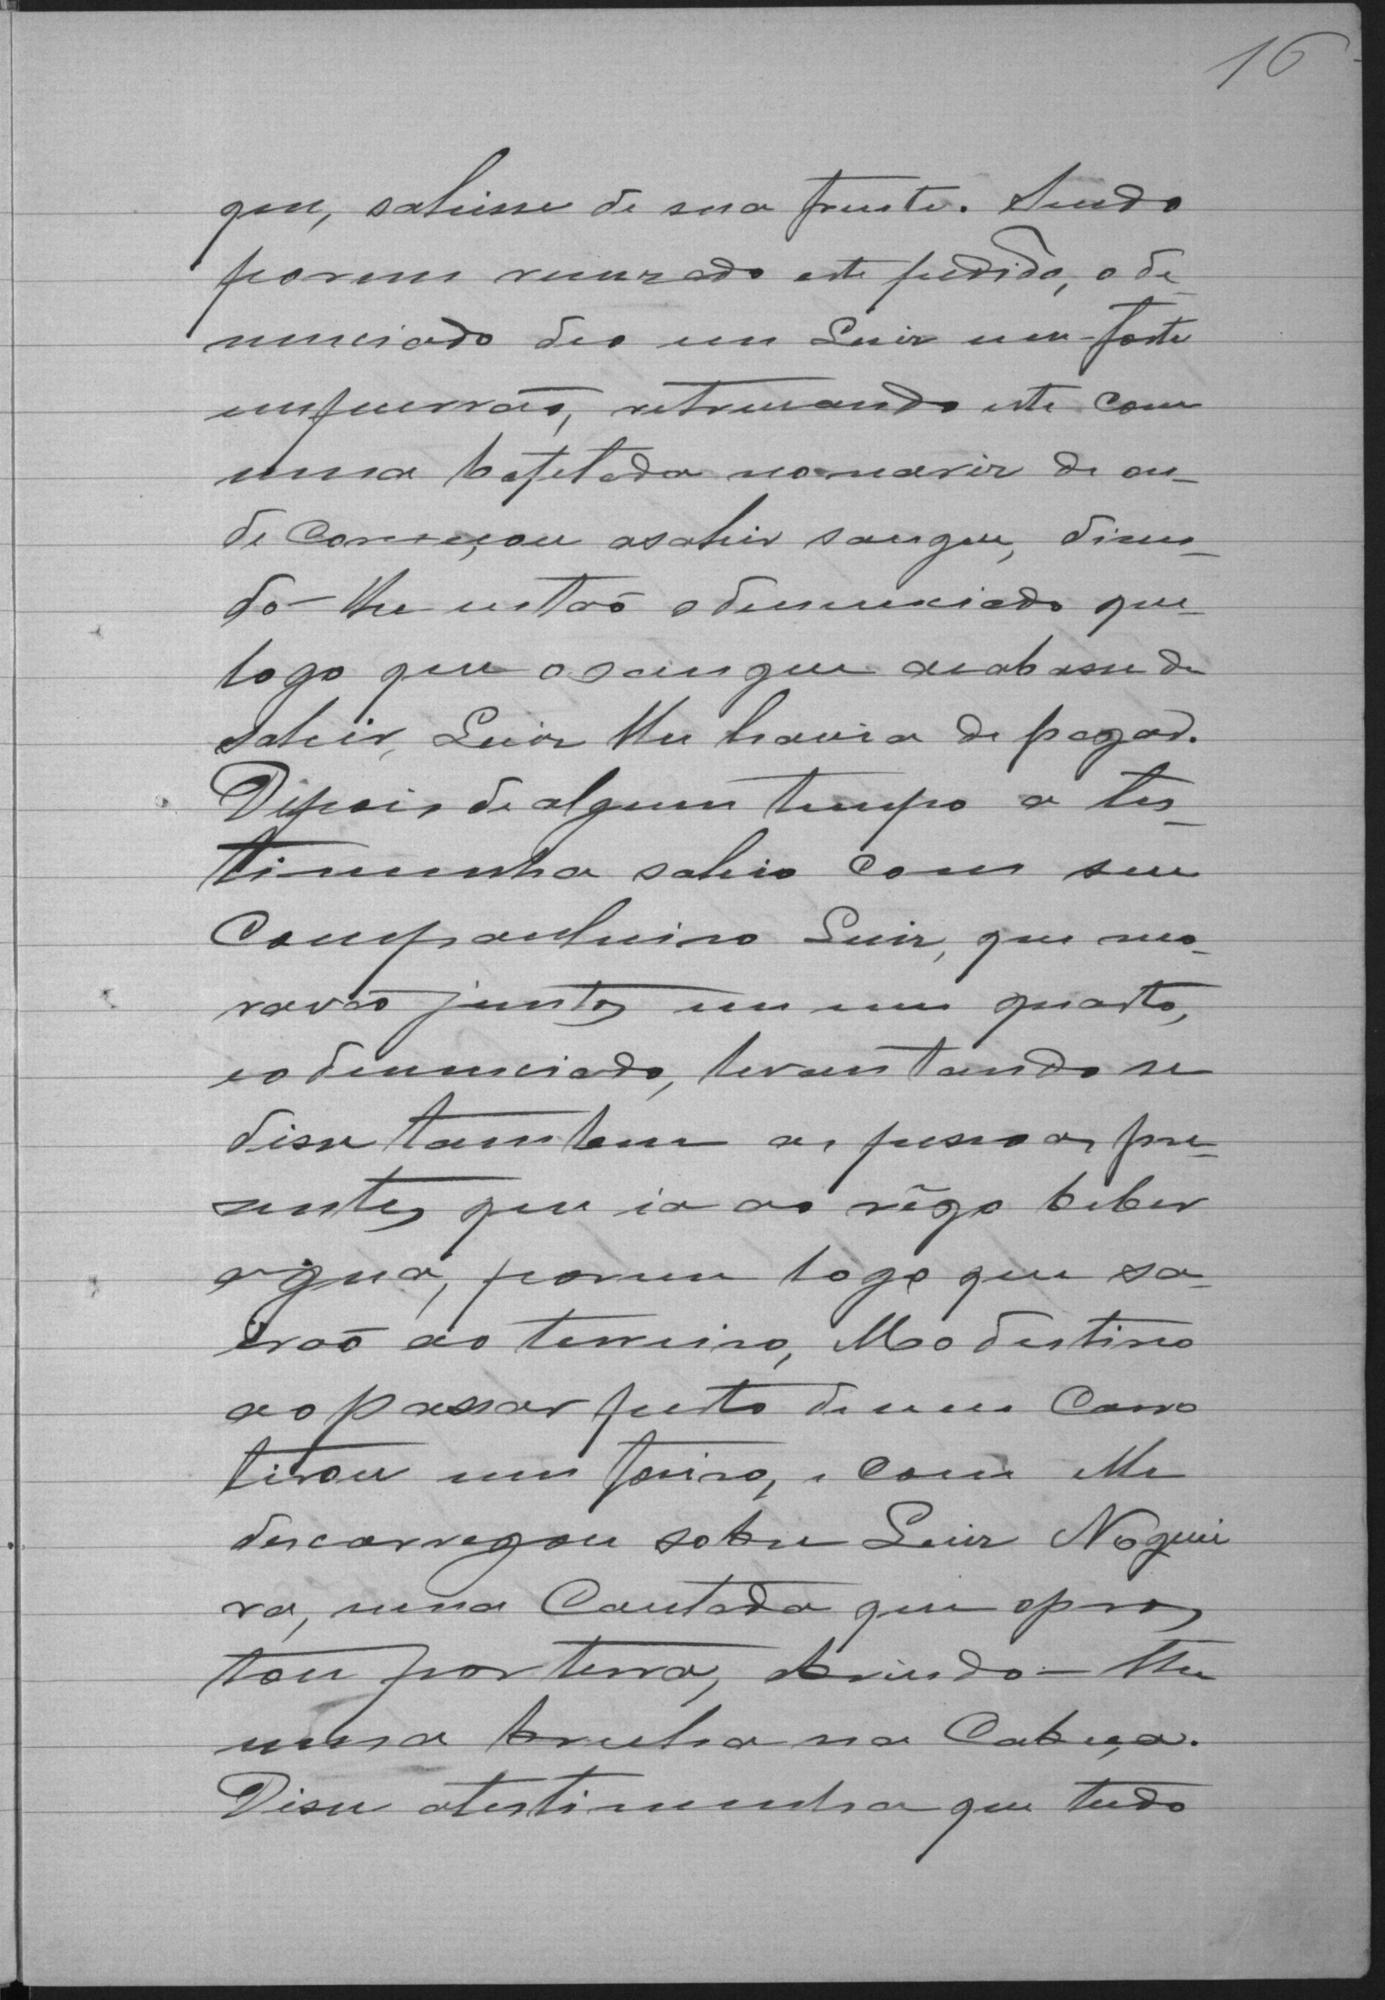 16
que, sahisse de sua frente. Sendo
porem recuzado este pedido, o de-
nunciado deo em Luiz um forte
empurrão, retrucando este com
uma bofetada no nariz de on-
de começou a sahir sangue, dizen-
do-lhe então o denunciado que
logo que o sangue acabasse de
sahir, Luiz lhe havia de pagar.
Depois de algum tempo a tes-
timunha sahio com seu
Companheiro Luiz, que mo-
ravão juntos em um quarto,
e o denunciado, levantando se
disse tambem as pessoas pre-
sentes que ia ao rêgo beber
agua, porem logo que sa-
irão ao terreiro, Modestino
ao passar perto de um Carro
tirou um foeiro, e com elle
descarregou sobre Luiz Noguei
ra, uma Cautada que o pros
tou por terra, abrindo-lhe
uma brecha na Cabeça.
Disse a testimunha que tudo